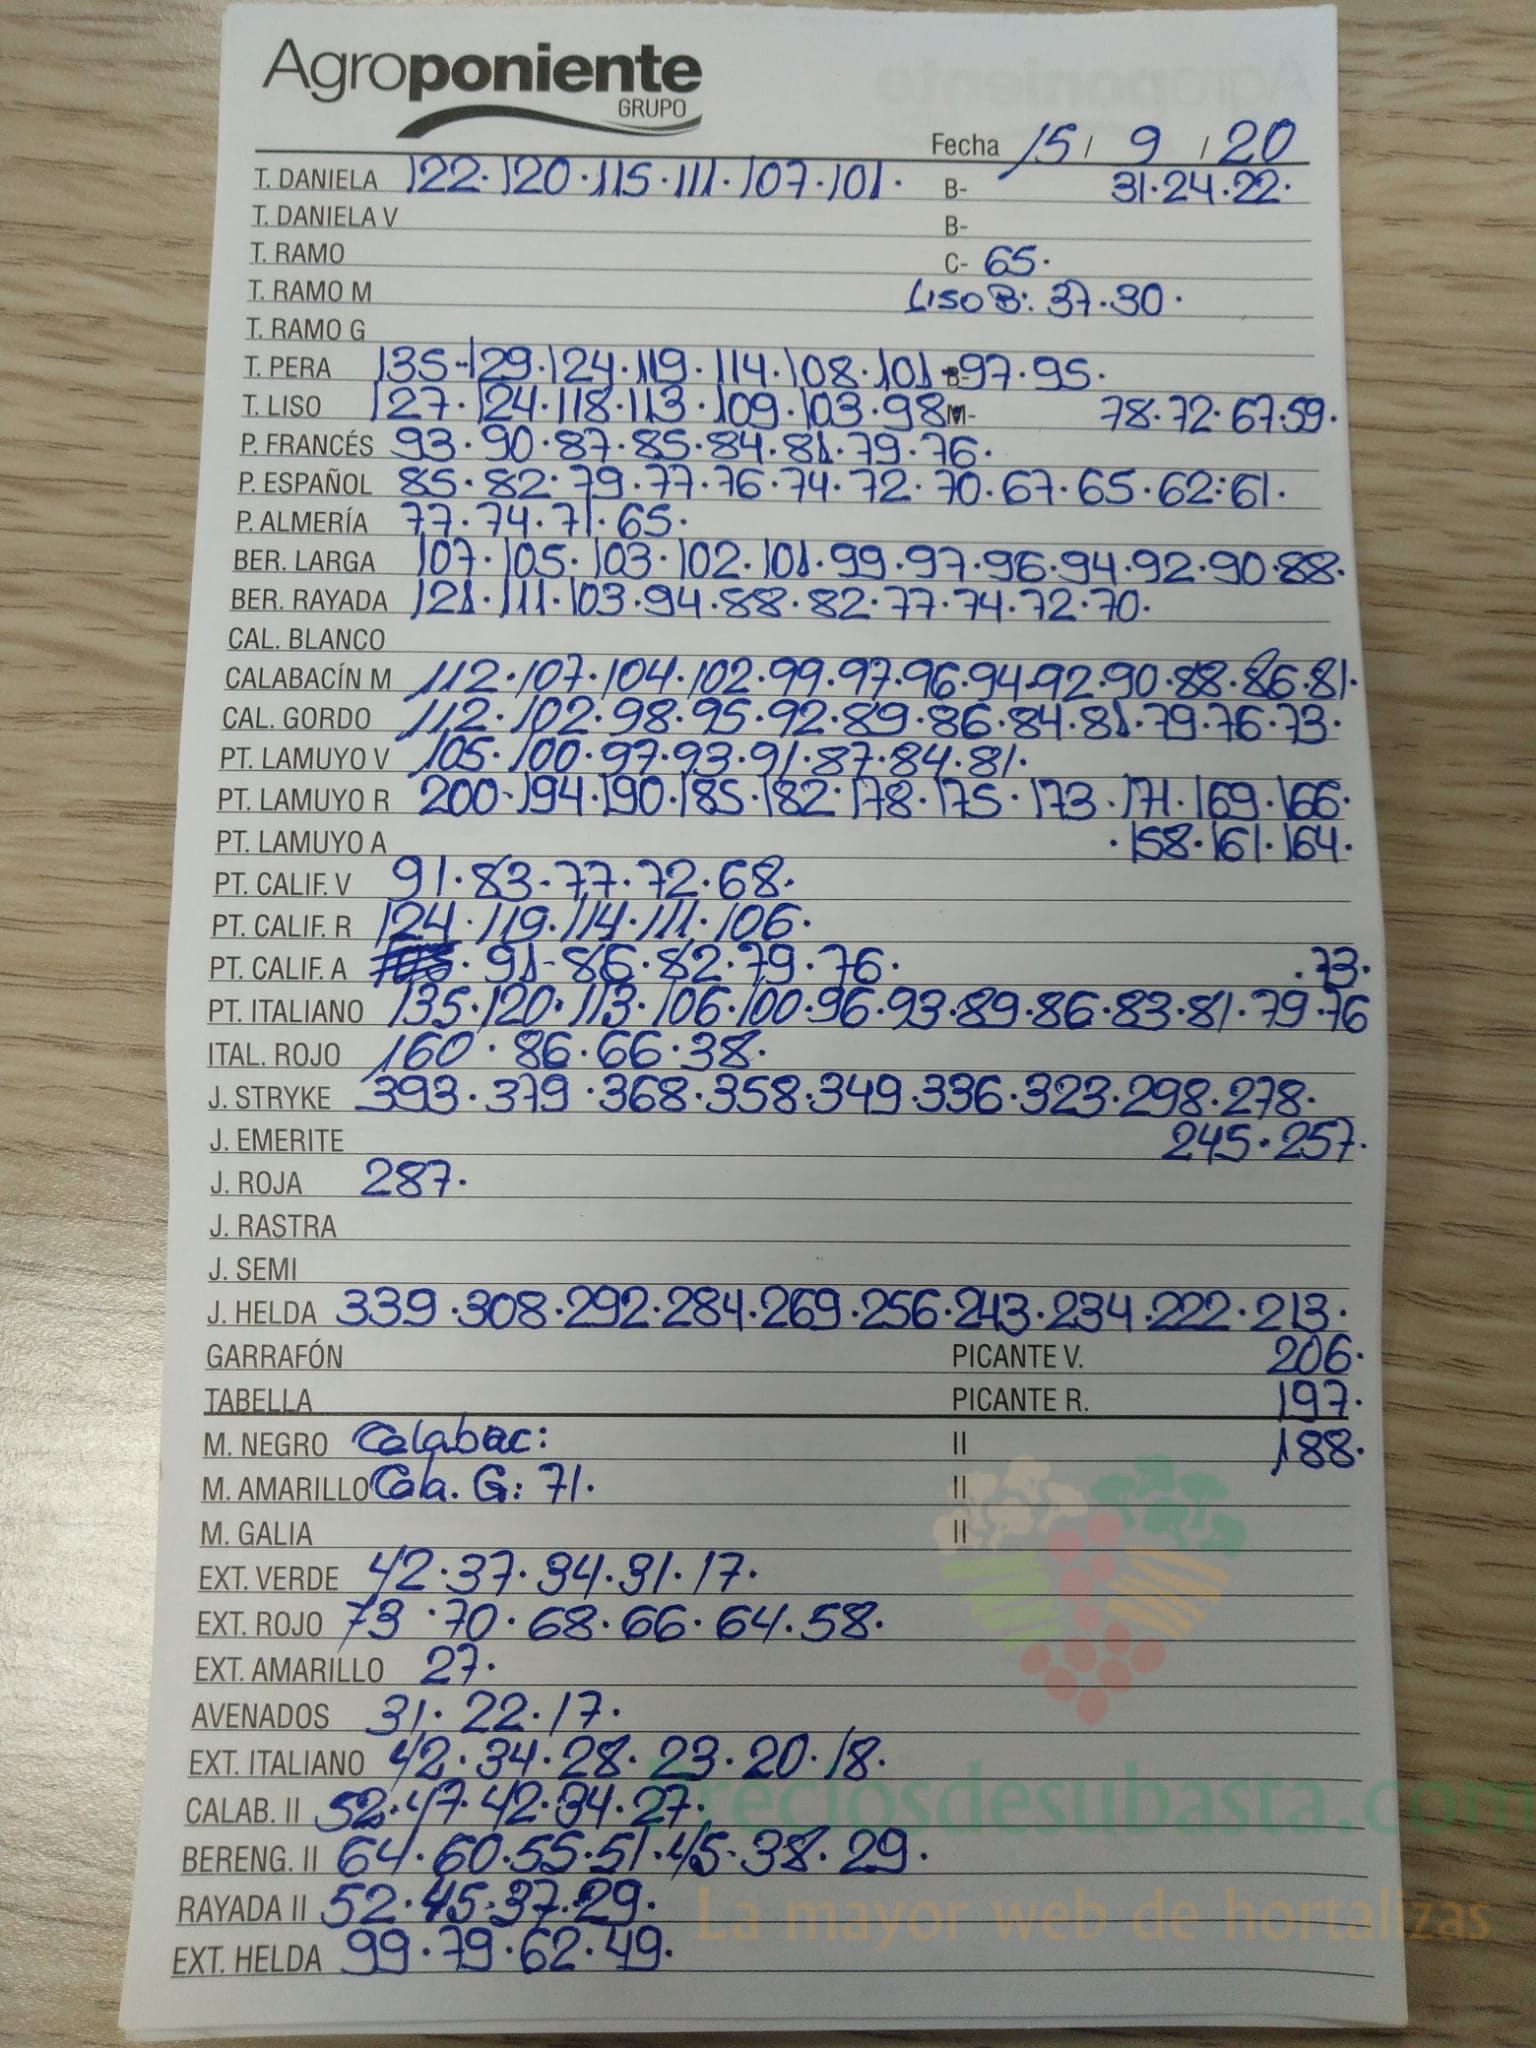 Agroponiente
GRUPO
Fecha 15 / 9 / 20
T. DANIELA 122. 120. 115. 111. 107. 101. B- 31. 24. 22.
T. DANIELA V B-
T. RAMO C- 65.
T. RAMO M Liso B: 37. 30.
T. RAMO G
T. PERA 135-129. 124. 119. 114. 108. 101 B- 97. 95.
T. LISO 127. 124. 118. 113. 109. 103. 98 M- 78. 72. 67. 59.
P. FRANCÉS 93. 90. 87. 85. 84. 81. 79. 76.
P. ESPAÑOL 85. 82. 79. 77. 76. 74. 72. 70. 67. 65. 62: 61.
P. ALMERÍA 77. 74. 71. 65.
BER. LARGA 107. 105. 103. 102. 101. 99. 97. 96. 94. 92. 90. 88.
BER. RAYADA 121. 111. 103. 94. 88. 82. 77. 74. 72. 70.
CAL. BLANCO
CALABACÍN M 112. 107. 104. 102. 99. 97. 96. 94. 92. 90. 88. 86. 81.
CAL. GORDO 112. 102. 98. 95. 92. 89. 86. 84. 81. 79. 76. 73.
PT. LAMUYO V 105. 100. 97. 93. 91. 87. 84. 81.
PT. LAMUYO R 200. 194. 190. 185. 182. 178. 175. 173. 171. 169. 166.
PT. LAMUYO A . 158. 161. 164.
PT. CALIF. V 91. 83. 77. 72. 68.
PT. CALIF. R 124. 119. 114. 111. 106.
PT. CALIF. A . 91- 86. 82. 79. 76. . 73.
PT. ITALIANO 135. 120. 113. 106. 100. 96. 93. 89. 86. 83. 81. 79. 76
ITAL. ROJO 160. 86. 66. 38.
J. STRYKE 393. 379. 368. 358. 349. 336. 323. 298. 278.
J. EMERITE 245. 257.
J. ROJA 287.
J. RASTRA
J. SEMI
J. HELDA 339. 308. 292. 284. 269. 256. 243. 234. 222. 213.
GARRAFÓN PICANTE V. 206.
TABELLA PICANTE R. 197.
M. NEGRO Calabac: II 188.
M. AMARILLO Cala. G: 71. II
M. GALIA II
EXT. VERDE 42. 37. 34. 31. 17.
EXT. ROJO 73. 70. 68. 66. 64. 58.
EXT. AMARILLO 27.
AVENADOS 31. 22. 17.
EXT. ITALIANO 42. 34. 28. 23. 20. 18.
CALAB. II 52. 47. 42. 34. 27.
Preciosdesubasta.com
BERENG. II 64. 60. 55. 51. 45. 38. 29.
RAYADA II 52. 45. 37. 29.
La mayor web de hortalizas
EXT. HELDA 99. 79. 62. 49.